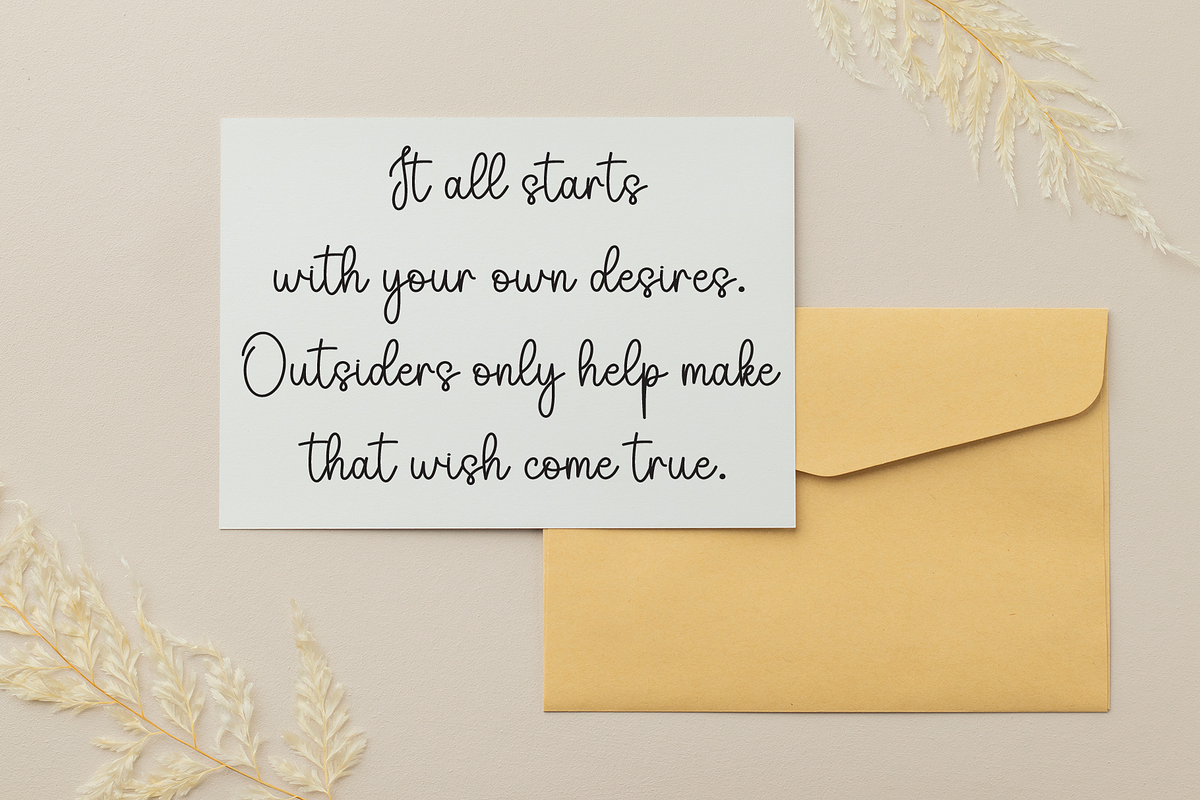 It all starts
with your own desires.
Outsiders only help make
that wish come true.